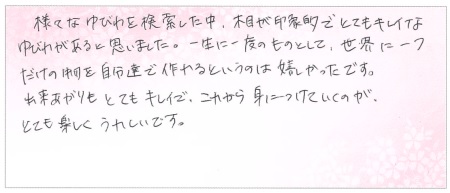 様々なゆびわを検索した中、木目が印象的でとてもキレイな
ゆびわがあると思いました。一生に一度のものとして、世界に一つ
だけの物を自分達で作れるというのは嬉しかったです。
出来あがりもとてもキレイで、これから身につけていくのが、
とても楽しくうれしいです。